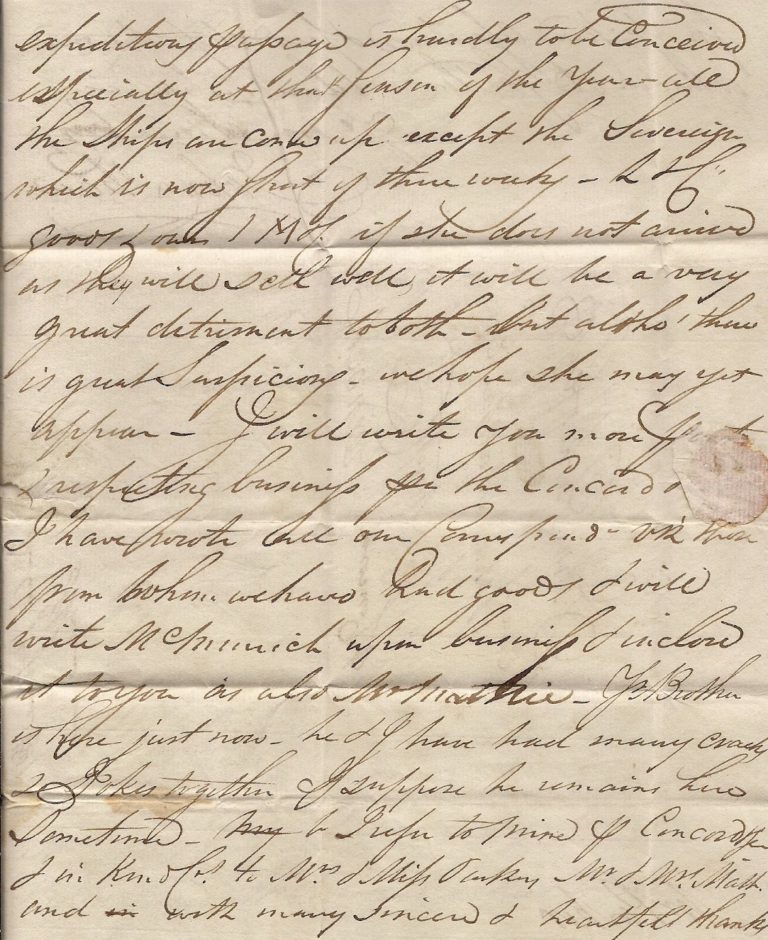 expeditious passage is hardly to be Conceived
especially at that Season of the Year all
the Ships are come up except the Sovereign
which is now short of three weeks - L & Co
goods & our 1 if she does not arrive
as they will sell well, it will be a very
great detriment to both - but altho' there
is great Suspicions - we hope she may yet
appear - I will write you more
respecting business pr the Concord
I have wrote all our Correspond viz those
from whom we have had goods I will
write McMurrich upon business & inclose
it to you as also Mr Mathie - Yr Brother
is here just now - he & I have had many cracks
& Jokes together I suppose he remains here
Sometime - I refer to mine p Concord
& in Kind Cps to Mrs & Miss Mr & Mrs Math
and with many sincere & heartfelt thanks